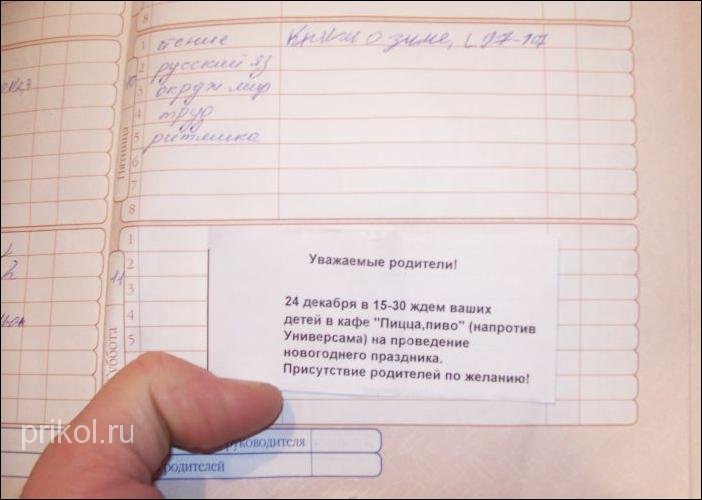 8
1 чтение Книги о зиме, с 97-107
2 русский яз
3 окруж мир
4 труд
5 ритмика
6
7
8
Пятница
10
1
2
3
4
5
11
Суббота
Уважаемые родители!
24 декабря в 15-30 ждем ваших
детей в кафе "Пицца,пиво" (напротив
Универсама) на проведение
новогоднего праздника.
Присутствие родителей по желанию!
руководителя
родителей
prikol.ru